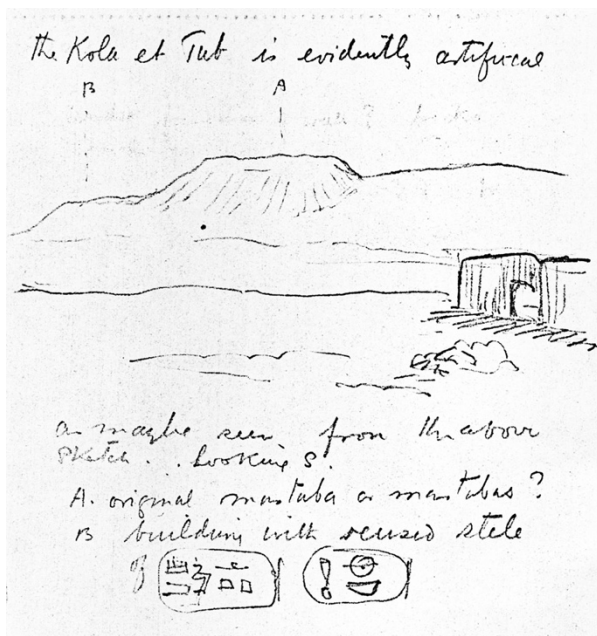 the Kola et Tub is evidently artificial
B A
as maybe seen from the above
sketch. . Looking S.
A. original mastaba or mastabas?
B building with reused stele
of